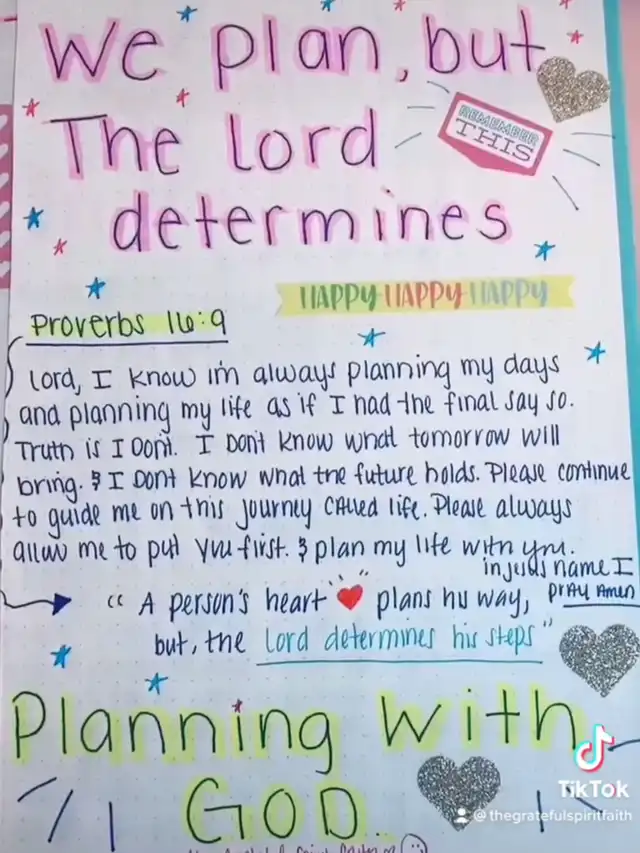 We plan, but
REMEMBER
THIS
The Lord
determines
HAPPY HAPPY HAPPY
Proverbs 16:9
Lord, I know im always planning my days
and planning my life as if I had the final say so.
Truth is I Dont. I Don't know what tomorrow will
bring. & I Don't know what the future holds. Please continue
to guide me on this journey CAlled life. Please always
allow me to put you first. & plan my life with you.
in jesus name I
pray Amen
“ A person's heart ❤ plans his way,
but, the Lord determines his steps”
Planning with
GOD
TikTok
@thegratefulspiritfaith